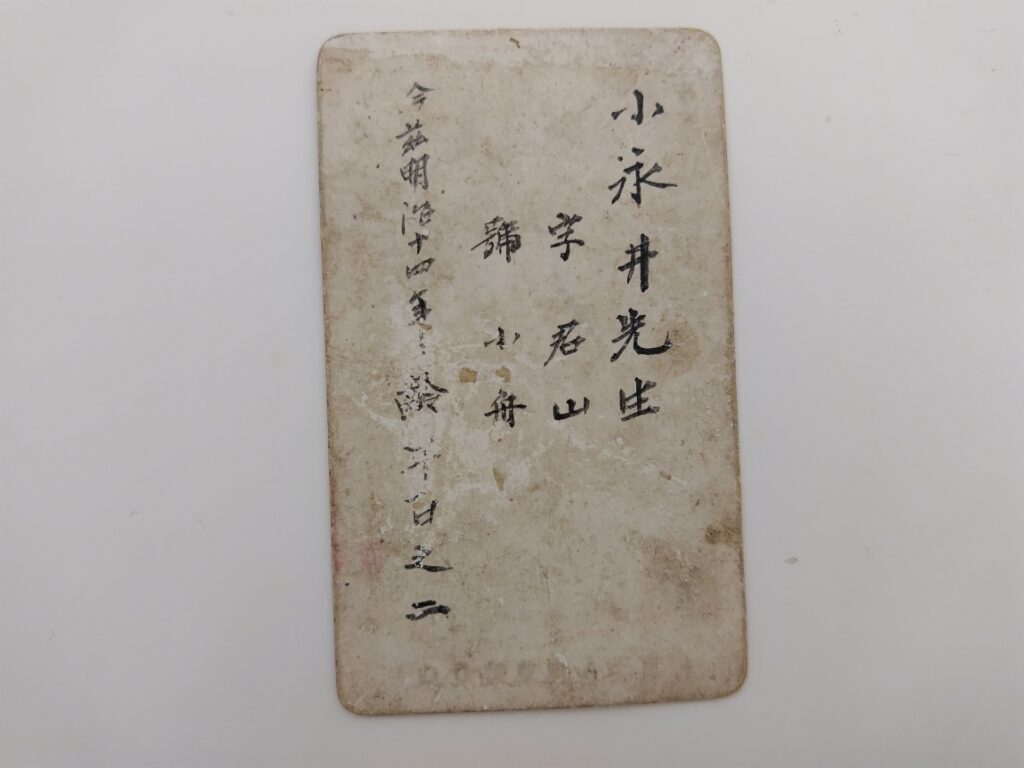 小永井先生
字君山
號小舟
今茲明治十四年 齡 之二